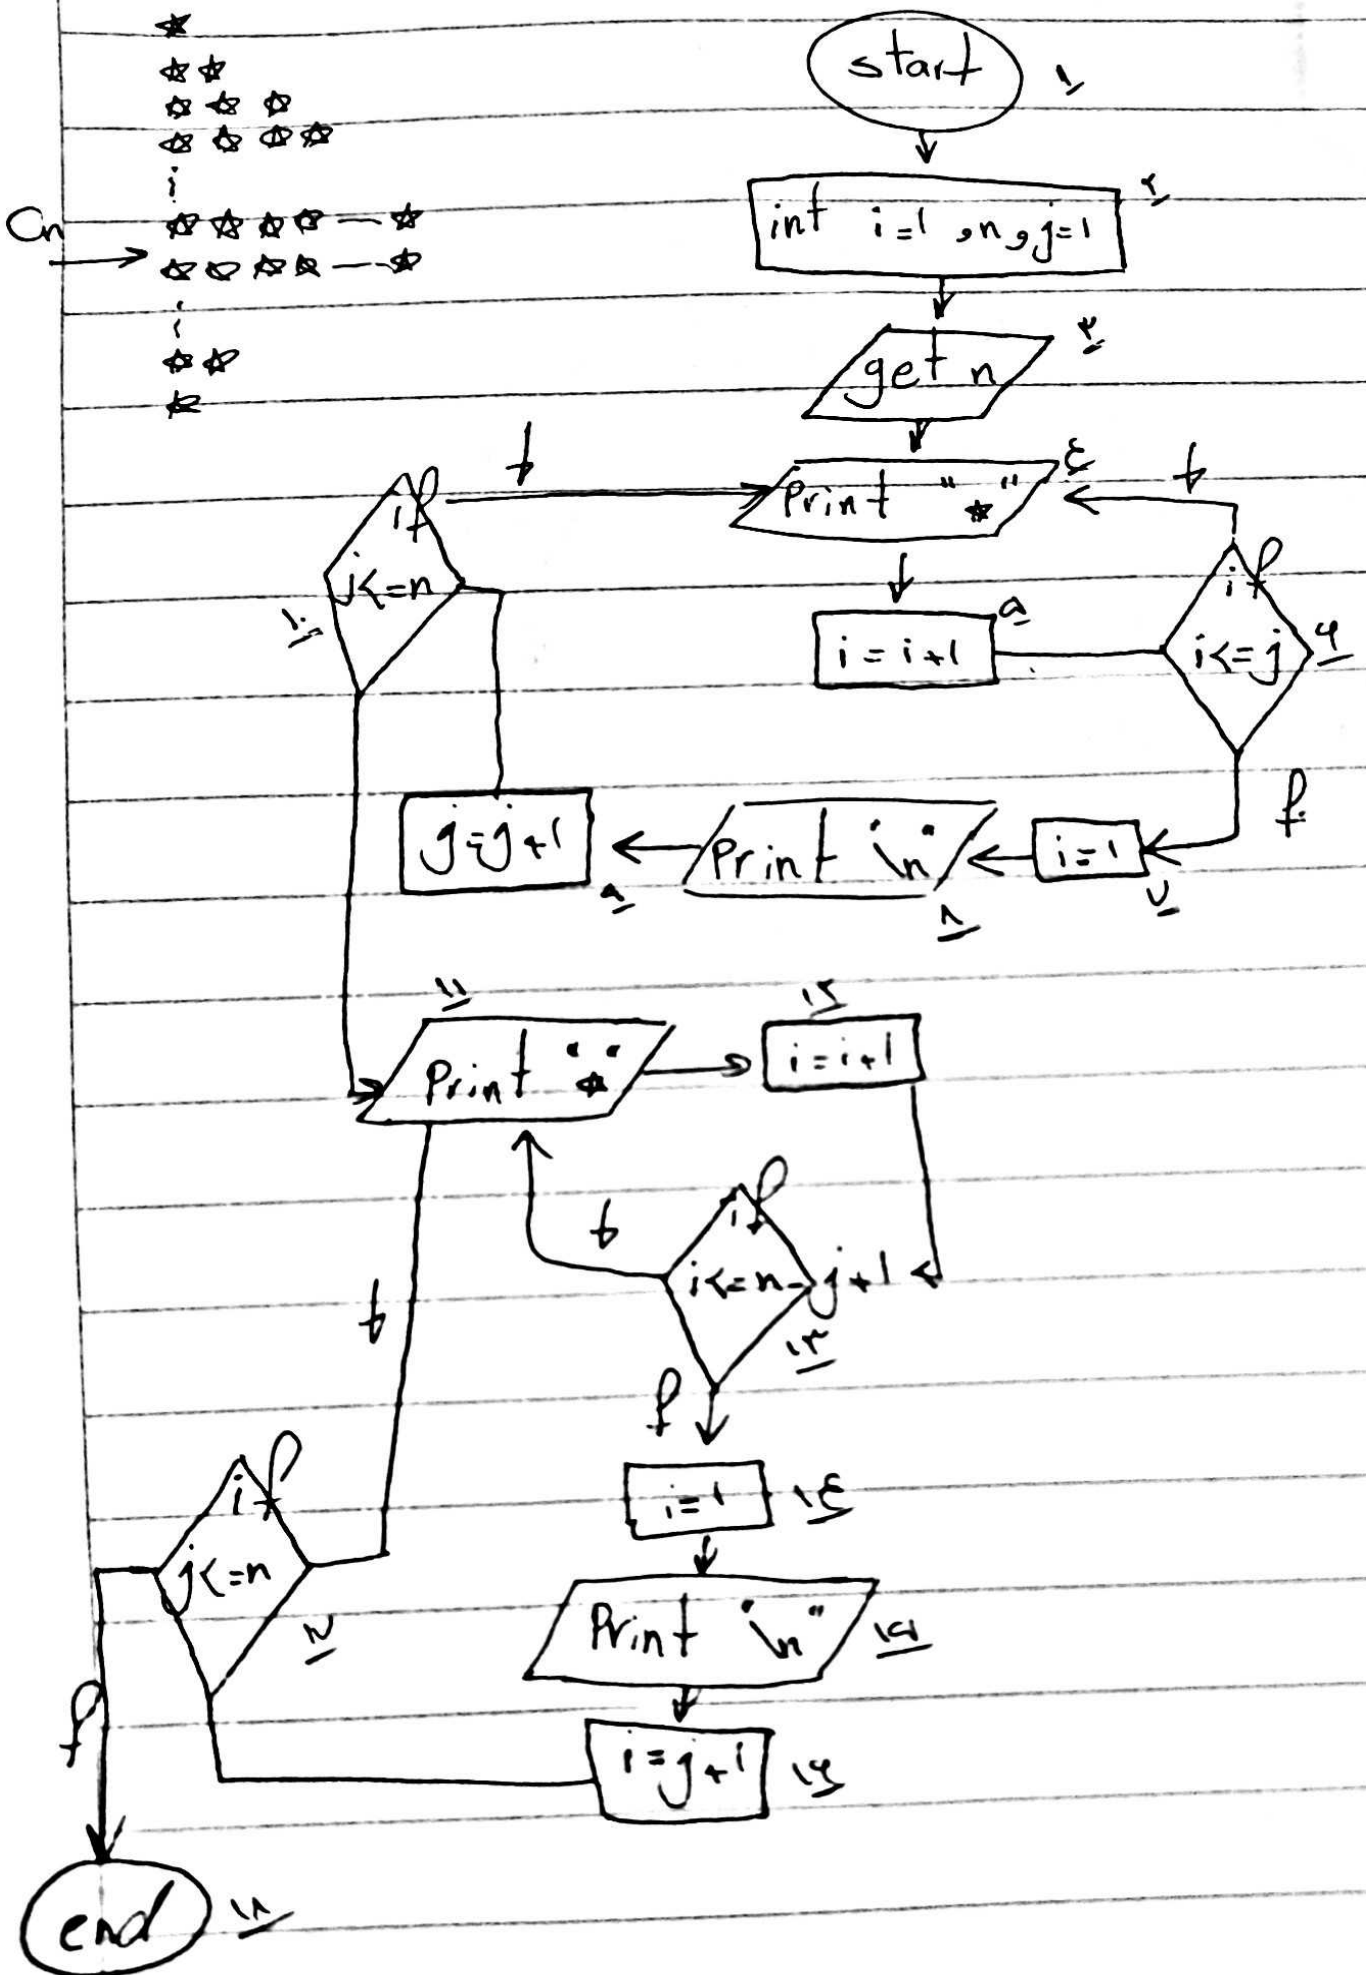 start ۱
int i=1 , n , j=1 ۲
Cn
get n ۳
t
Print "*" ۴
t
if
j<=n ۱۰
i = i+1 ۵
if
i<=j ۶
f
j=j+1 ۹
Print "\n" ۸
i=1 ۷
۱۱
Print "*"
۱۲
i=i+1
t
if
i<=n-j+1
۱۳
t
f
i=1 ۱۴
if
j<=n
۱۷
Print "\n" ۱۵
f
i=j+1 ۱۶
end ۱۸